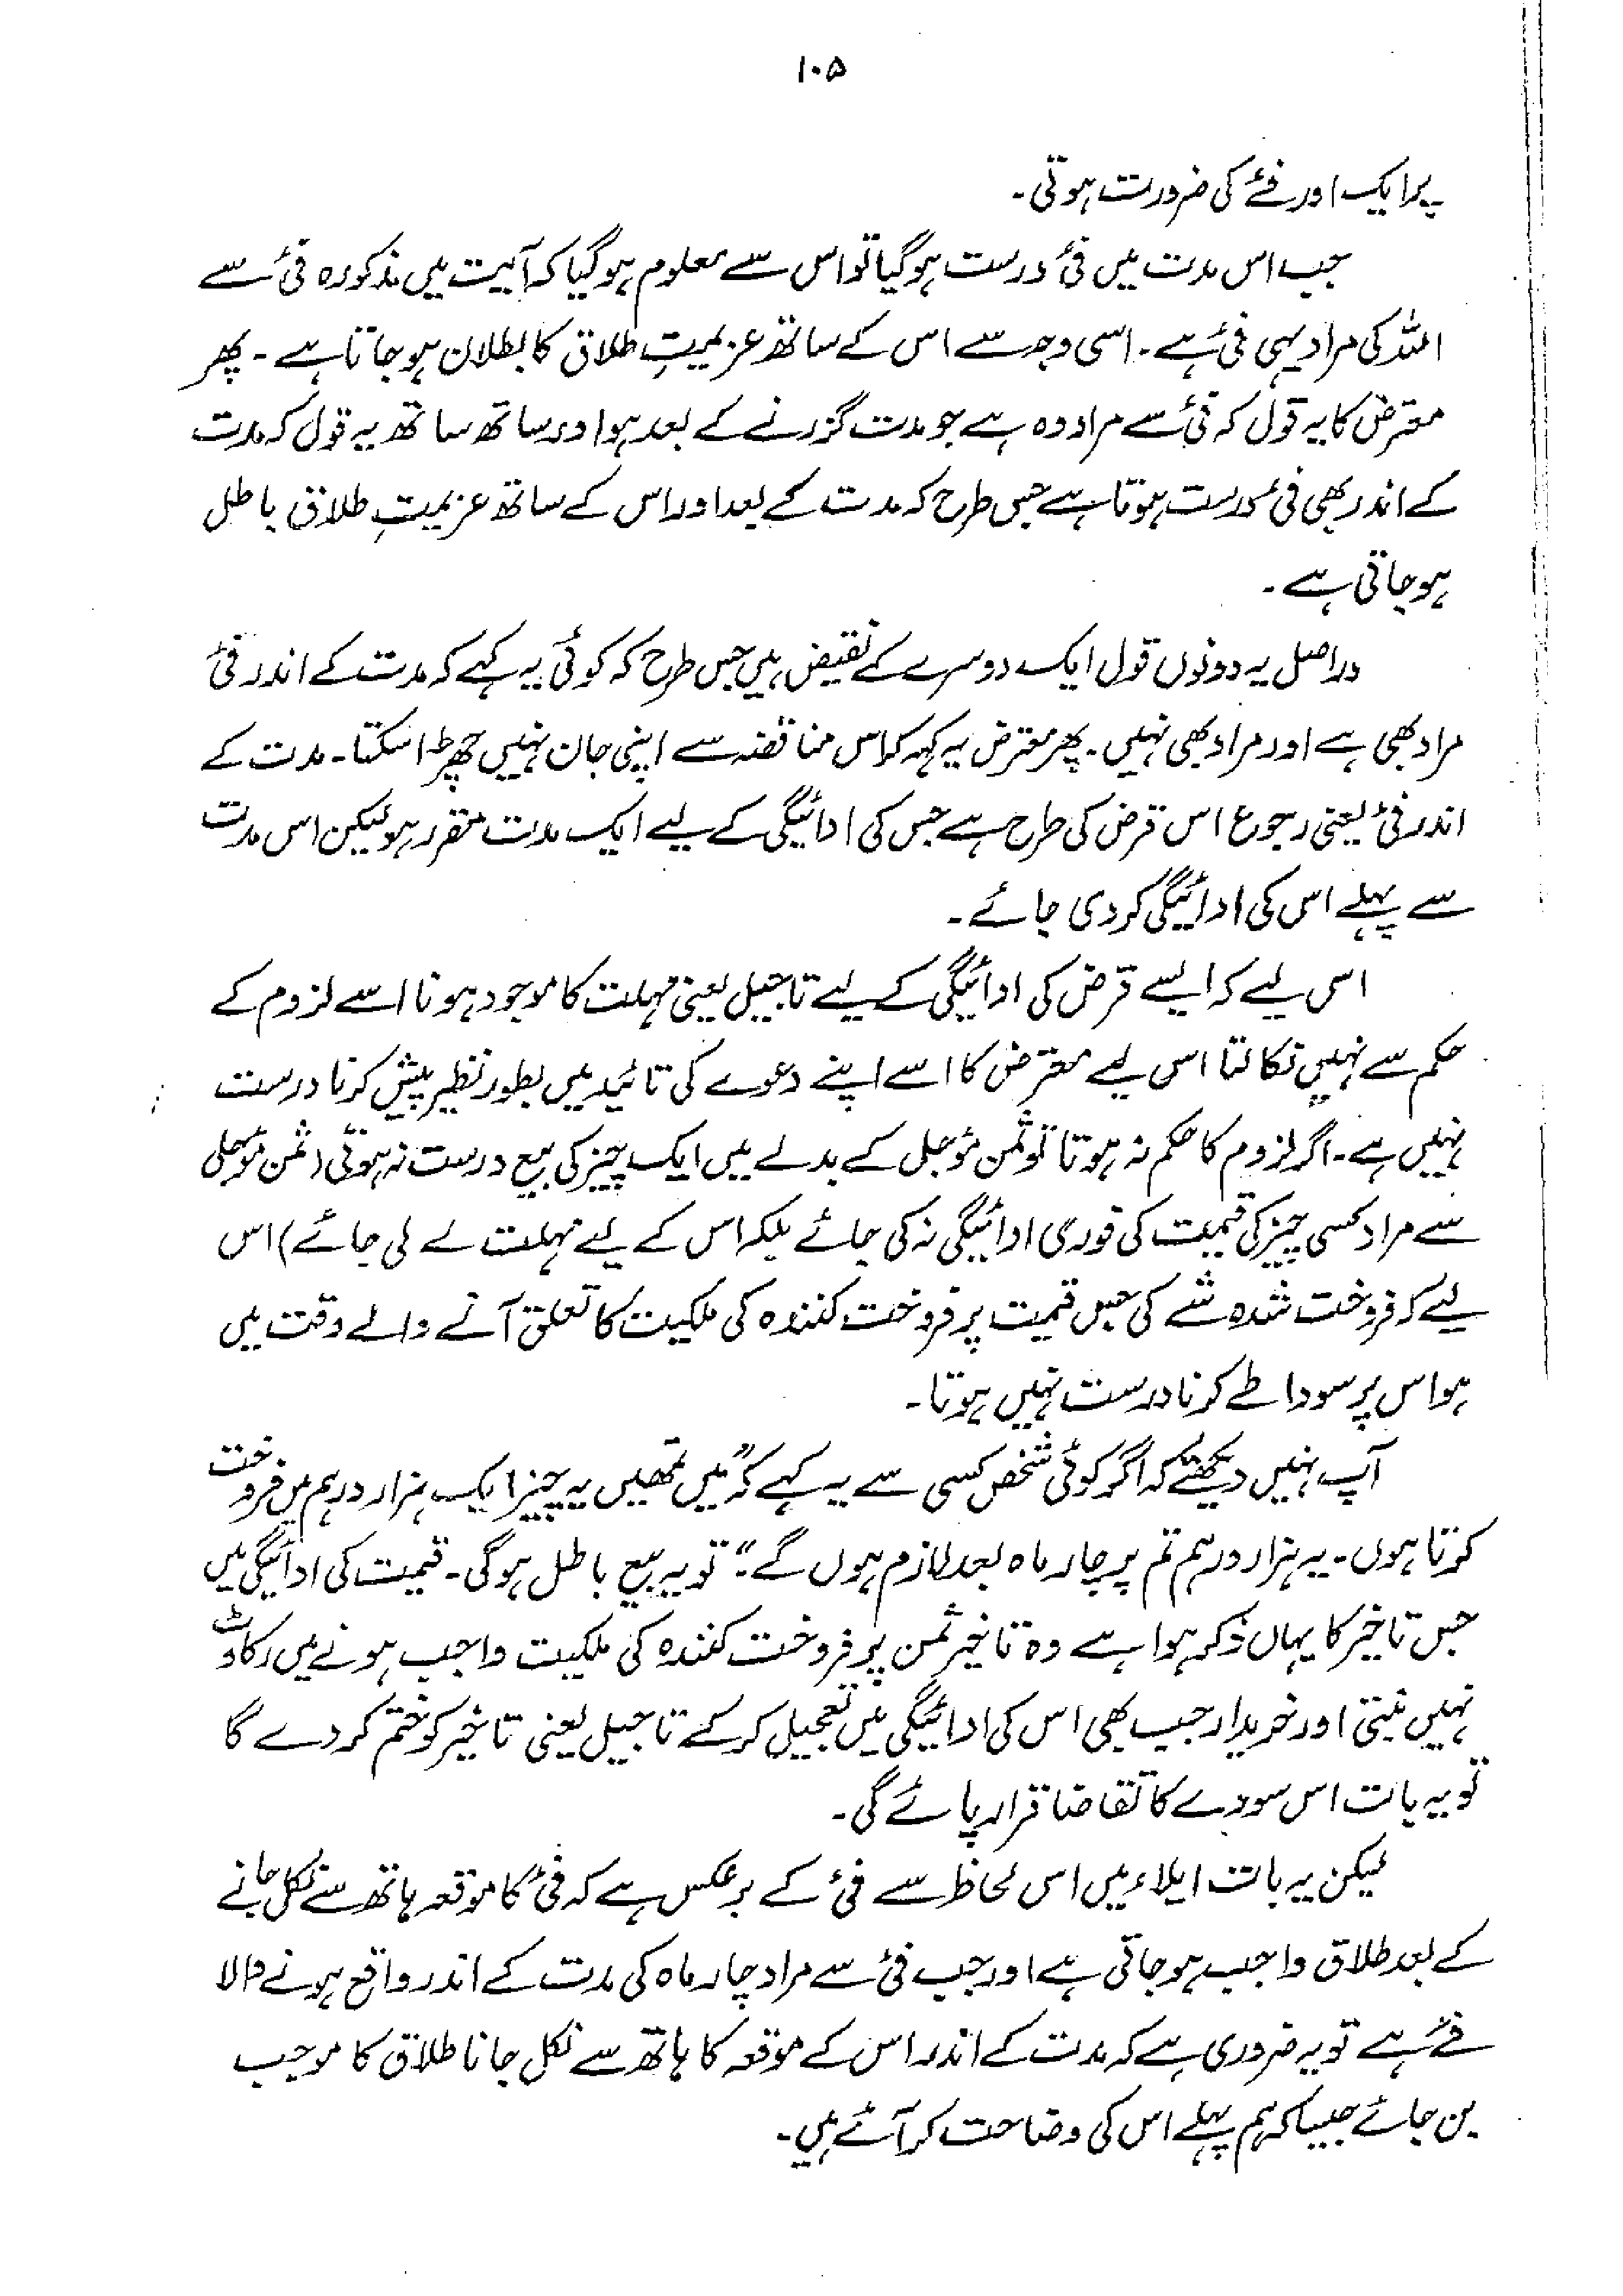 ۱۰۵
پر ایک اور فئے کی ضرورت ہوتی۔
جب اس مدت میں فئ درست ہوگیا تو اس سے معلوم ہوگیا کہ آیت میں مذکورہ فئ سے
اللہ کی مراد یہی فئ ہے۔ اسی وجہ سے اس کے ساتھ عزیمتِ طلاق کا بطلان ہو جاتا ہے۔ پھر
معترض کا یہ قول کہ فئ سے مراد وہ ہے جو مدت گزرنے کے بعد ہو اور ساتھ ساتھ یہ قول کہ مدت
کے اندر بھی فئ درست ہوتا ہے جس طرح کہ مدت کے بعد اور اس کے ساتھ عزیمتِ طلاق باطل
ہو جاتی ہے۔
دراصل یہ دونوں قول ایک دوسرے کے نقیض ہیں جس طرح کہ کوئی یہ کہے کہ مدت کے اندر فئ
مراد بھی ہے اور مراد بھی نہیں۔ پھر معترض یہ کہہ کر اس مناقضہ سے اپنی جان نہیں چھڑا سکتا۔ مدت کے
اندر فئ یعنی رجوع اس قرض کی طرح ہے جس کی ادائیگی کے لیے ایک مدت مقرر ہو لیکن اس مدت
سے پہلے اس کی ادائیگی کر دی جائے۔
اس لیے کہ ایسے قرض کی ادائیگی کے لیے تاجیل یعنی مہلت کا موجود ہونا اسے لزوم کے
حکم سے نہیں نکالتا اس لیے معترض کا اسے اپنے دعوے کی تائید میں بطور نظیر پیش کرنا درست
نہیں ہے۔ اگر لزوم کا حکم نہ ہوتا تو ثمن مؤجل کے بدلے میں ایک چیز کی بیع درست نہ ہوتی (ثمن مؤجل
سے مراد کسی چیز کی قیمت کی فوری ادائیگی نہ کی جائے بلکہ اس کے لیے مہلت لے لی جائے) اس
لیے کہ فروخت شدہ شے کی جس قیمت پر فروخت کنندہ کی ملکیت کا تعلق آنے والے وقت میں
ہو اس پر سودا طے کرنا درست نہیں ہوتا۔
آپ نہیں دیکھتے کہ اگر کوئی شخص کسی سے یہ کہے کہ "میں تمھیں یہ چیز ایک ہزار درہم میں فروخت
کرتا ہوں۔ یہ ہزار درہم تم پر چار ماہ بعد لازم ہوں گے"۔ تو یہ بیع باطل ہوگی۔ قیمت کی ادائیگی میں
جس تاخیر کا یہاں ذکر ہوا ہے وہ تاخیر ثمن پر فروخت کنندہ کی ملکیت واجب ہونے میں رکاوٹ
نہیں بنتی اور خریدار جب بھی اس کی ادائیگی میں تعجیل کر کے تاجیل یعنی تاخیر کو ختم کر دے گا
تو یہ بات اس سودے کا تقاضا قرار پائے گی۔
لیکن یہ بات ایلاء میں اس لحاظ سے فئ کے برعکس ہے کہ فئ کا موقعہ ہاتھ سے نکل جانے
کے بعد طلاق واجب ہو جاتی ہے اور جب فئ سے مراد چار ماہ کی مدت کے اندر واقع ہونے والا
فئے ہے تو یہ ضروری ہے کہ مدت کے اندر اس کے موقعہ کا ہاتھ سے نکل جانا طلاق کا موجب
بن جائے جیسا کہ ہم پہلے اس کی وضاحت کر آئے ہیں۔